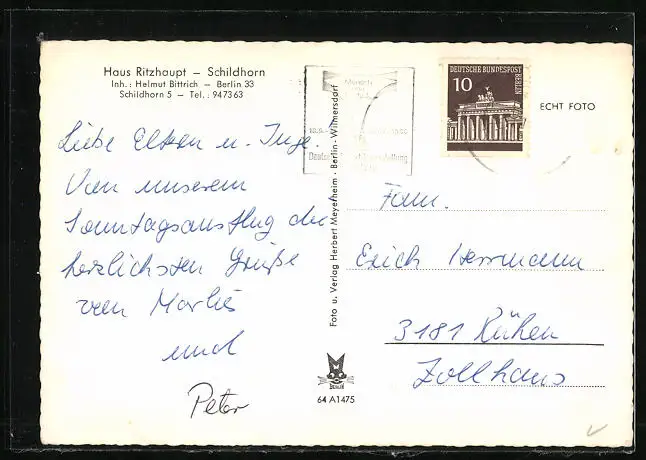 Haus Ritzhaupt – Schildhorn
Inh.: Helmut Bittrich – Berlin 33
Schildhorn 5 – Tel.: 947363
Liebe Eltern u. Inge.
Von unserem
Sonntagsausflug die
herzlichsten Grüße
von Marlis
und
Peter
Foto u. Verlag Herbert Meyerheim · Berlin-Wilmersdorf
BERLIN
64 A1475
DEUTSCHE BUNDESPOST
BERLIN
10
ECHT FOTO
Fam.
Erich Herrmann
3181 Rühen
Zollhaus